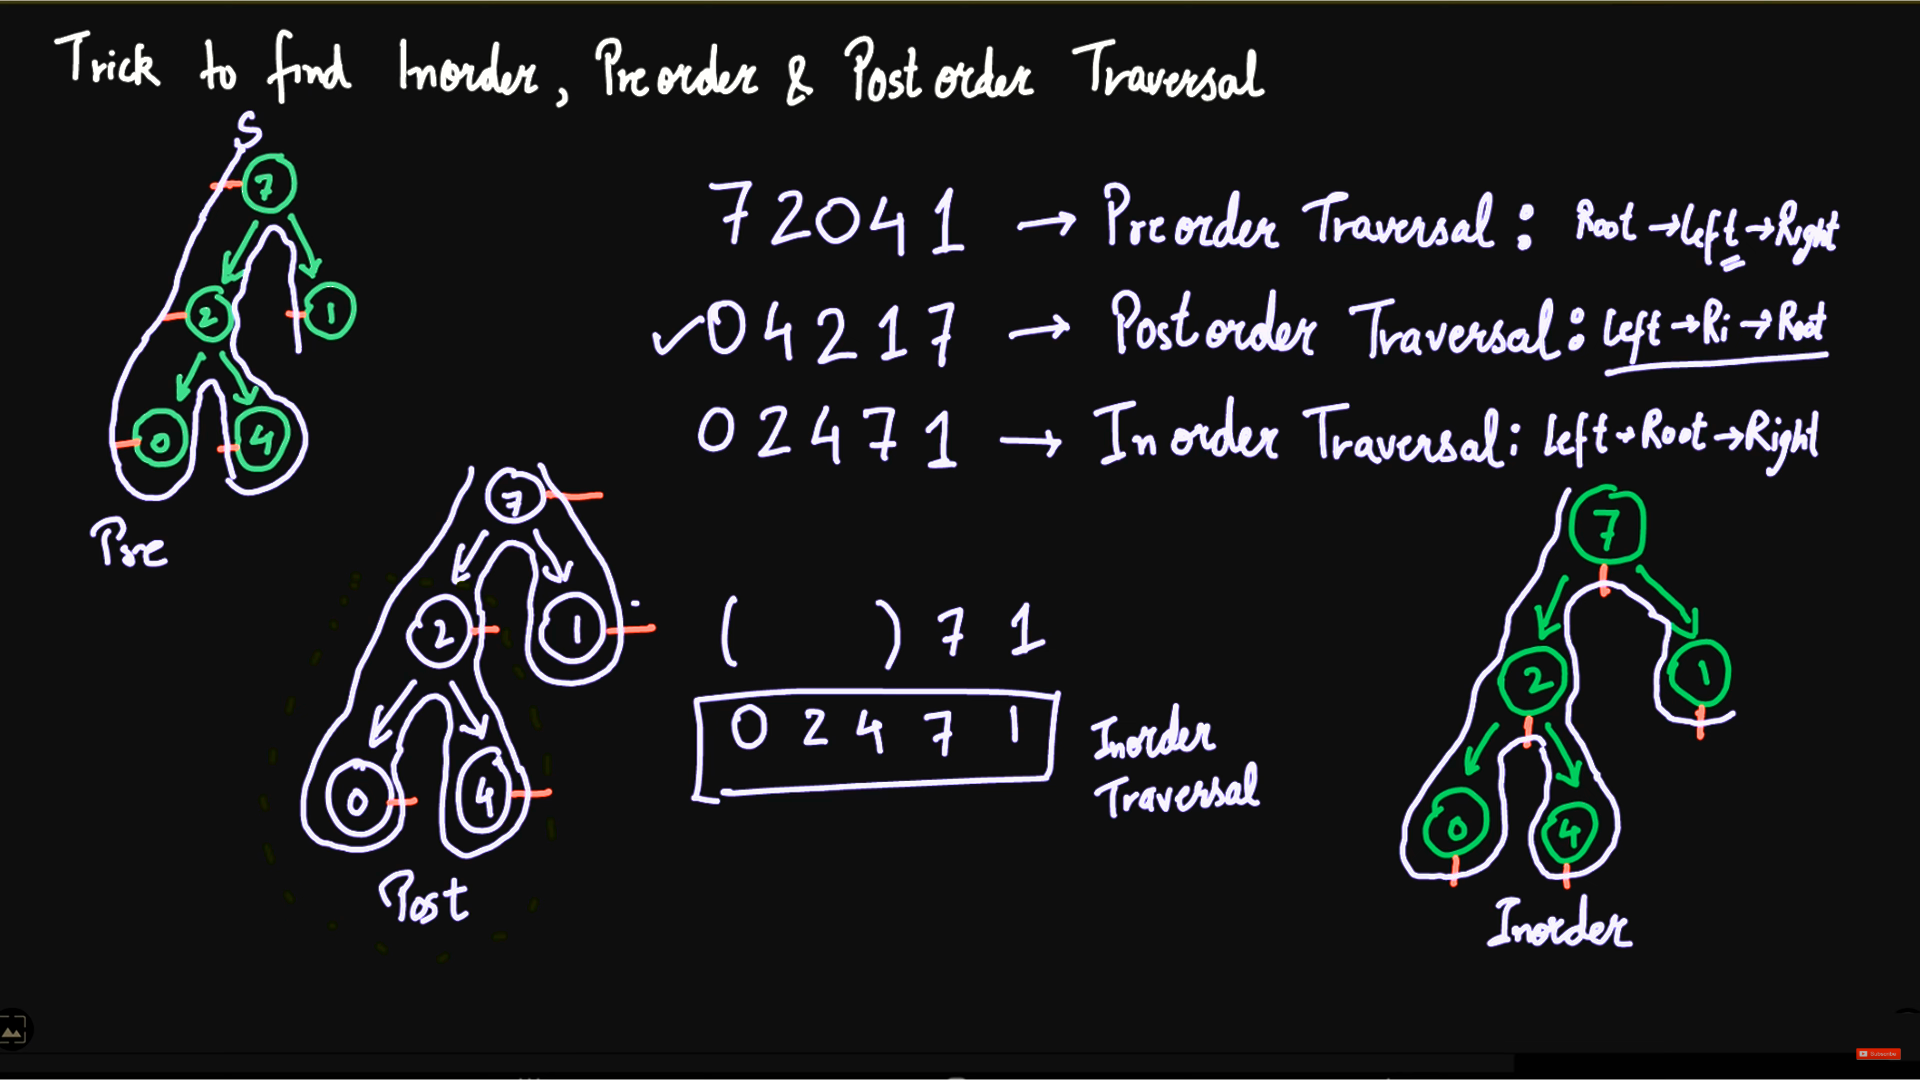 Trick to find Inorder, Preorder & Postorder Traversal
S
7
2
1
0
4
Pre
7 2 0 4 1 → Preorder Traversal : Root → Left → Right
✓ 0 4 2 1 7 → Postorder Traversal : Left → Ri → Root
0 2 4 7 1 → Inorder Traversal : Left → Root → Right
7
2
1
0
4
Post
( ) 7 1
0 2 4 7 1
Inorder
Traversal
7
2
1
0
4
Inorder
Subscribe